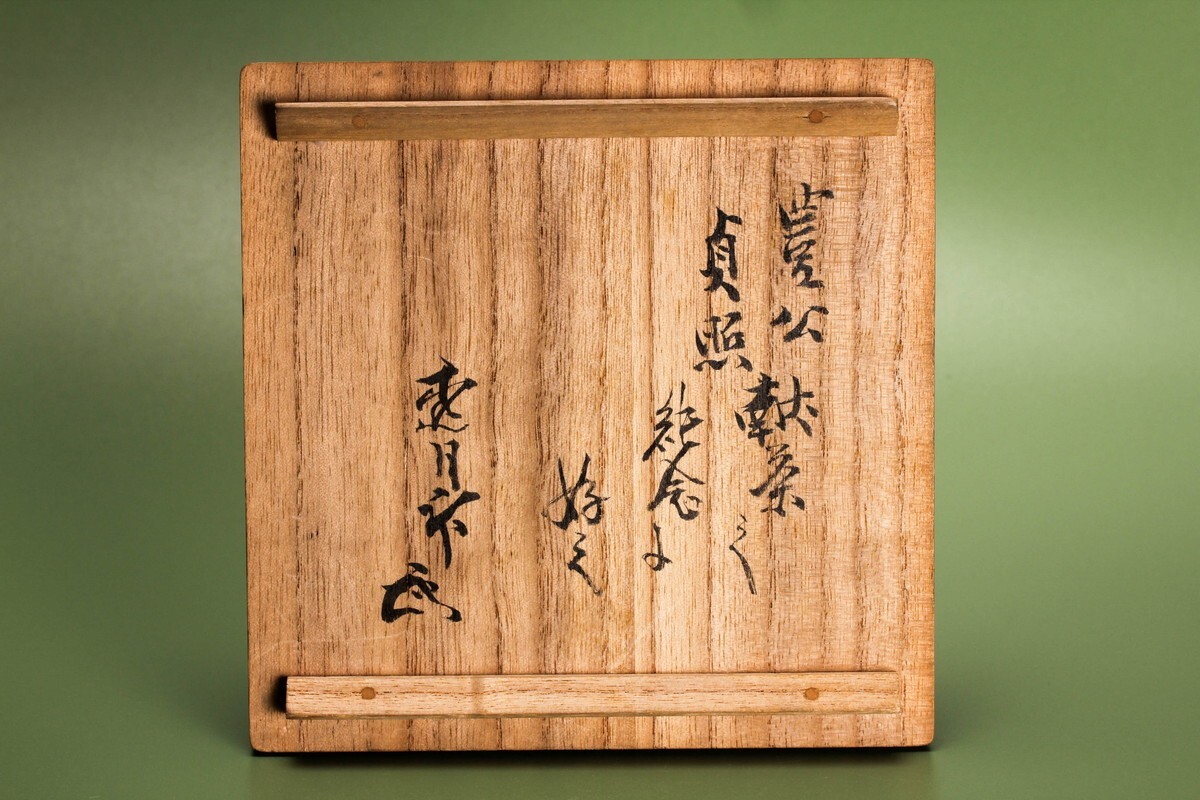 豊公
献茶之
貞照
紀念に
好之
惠月斎